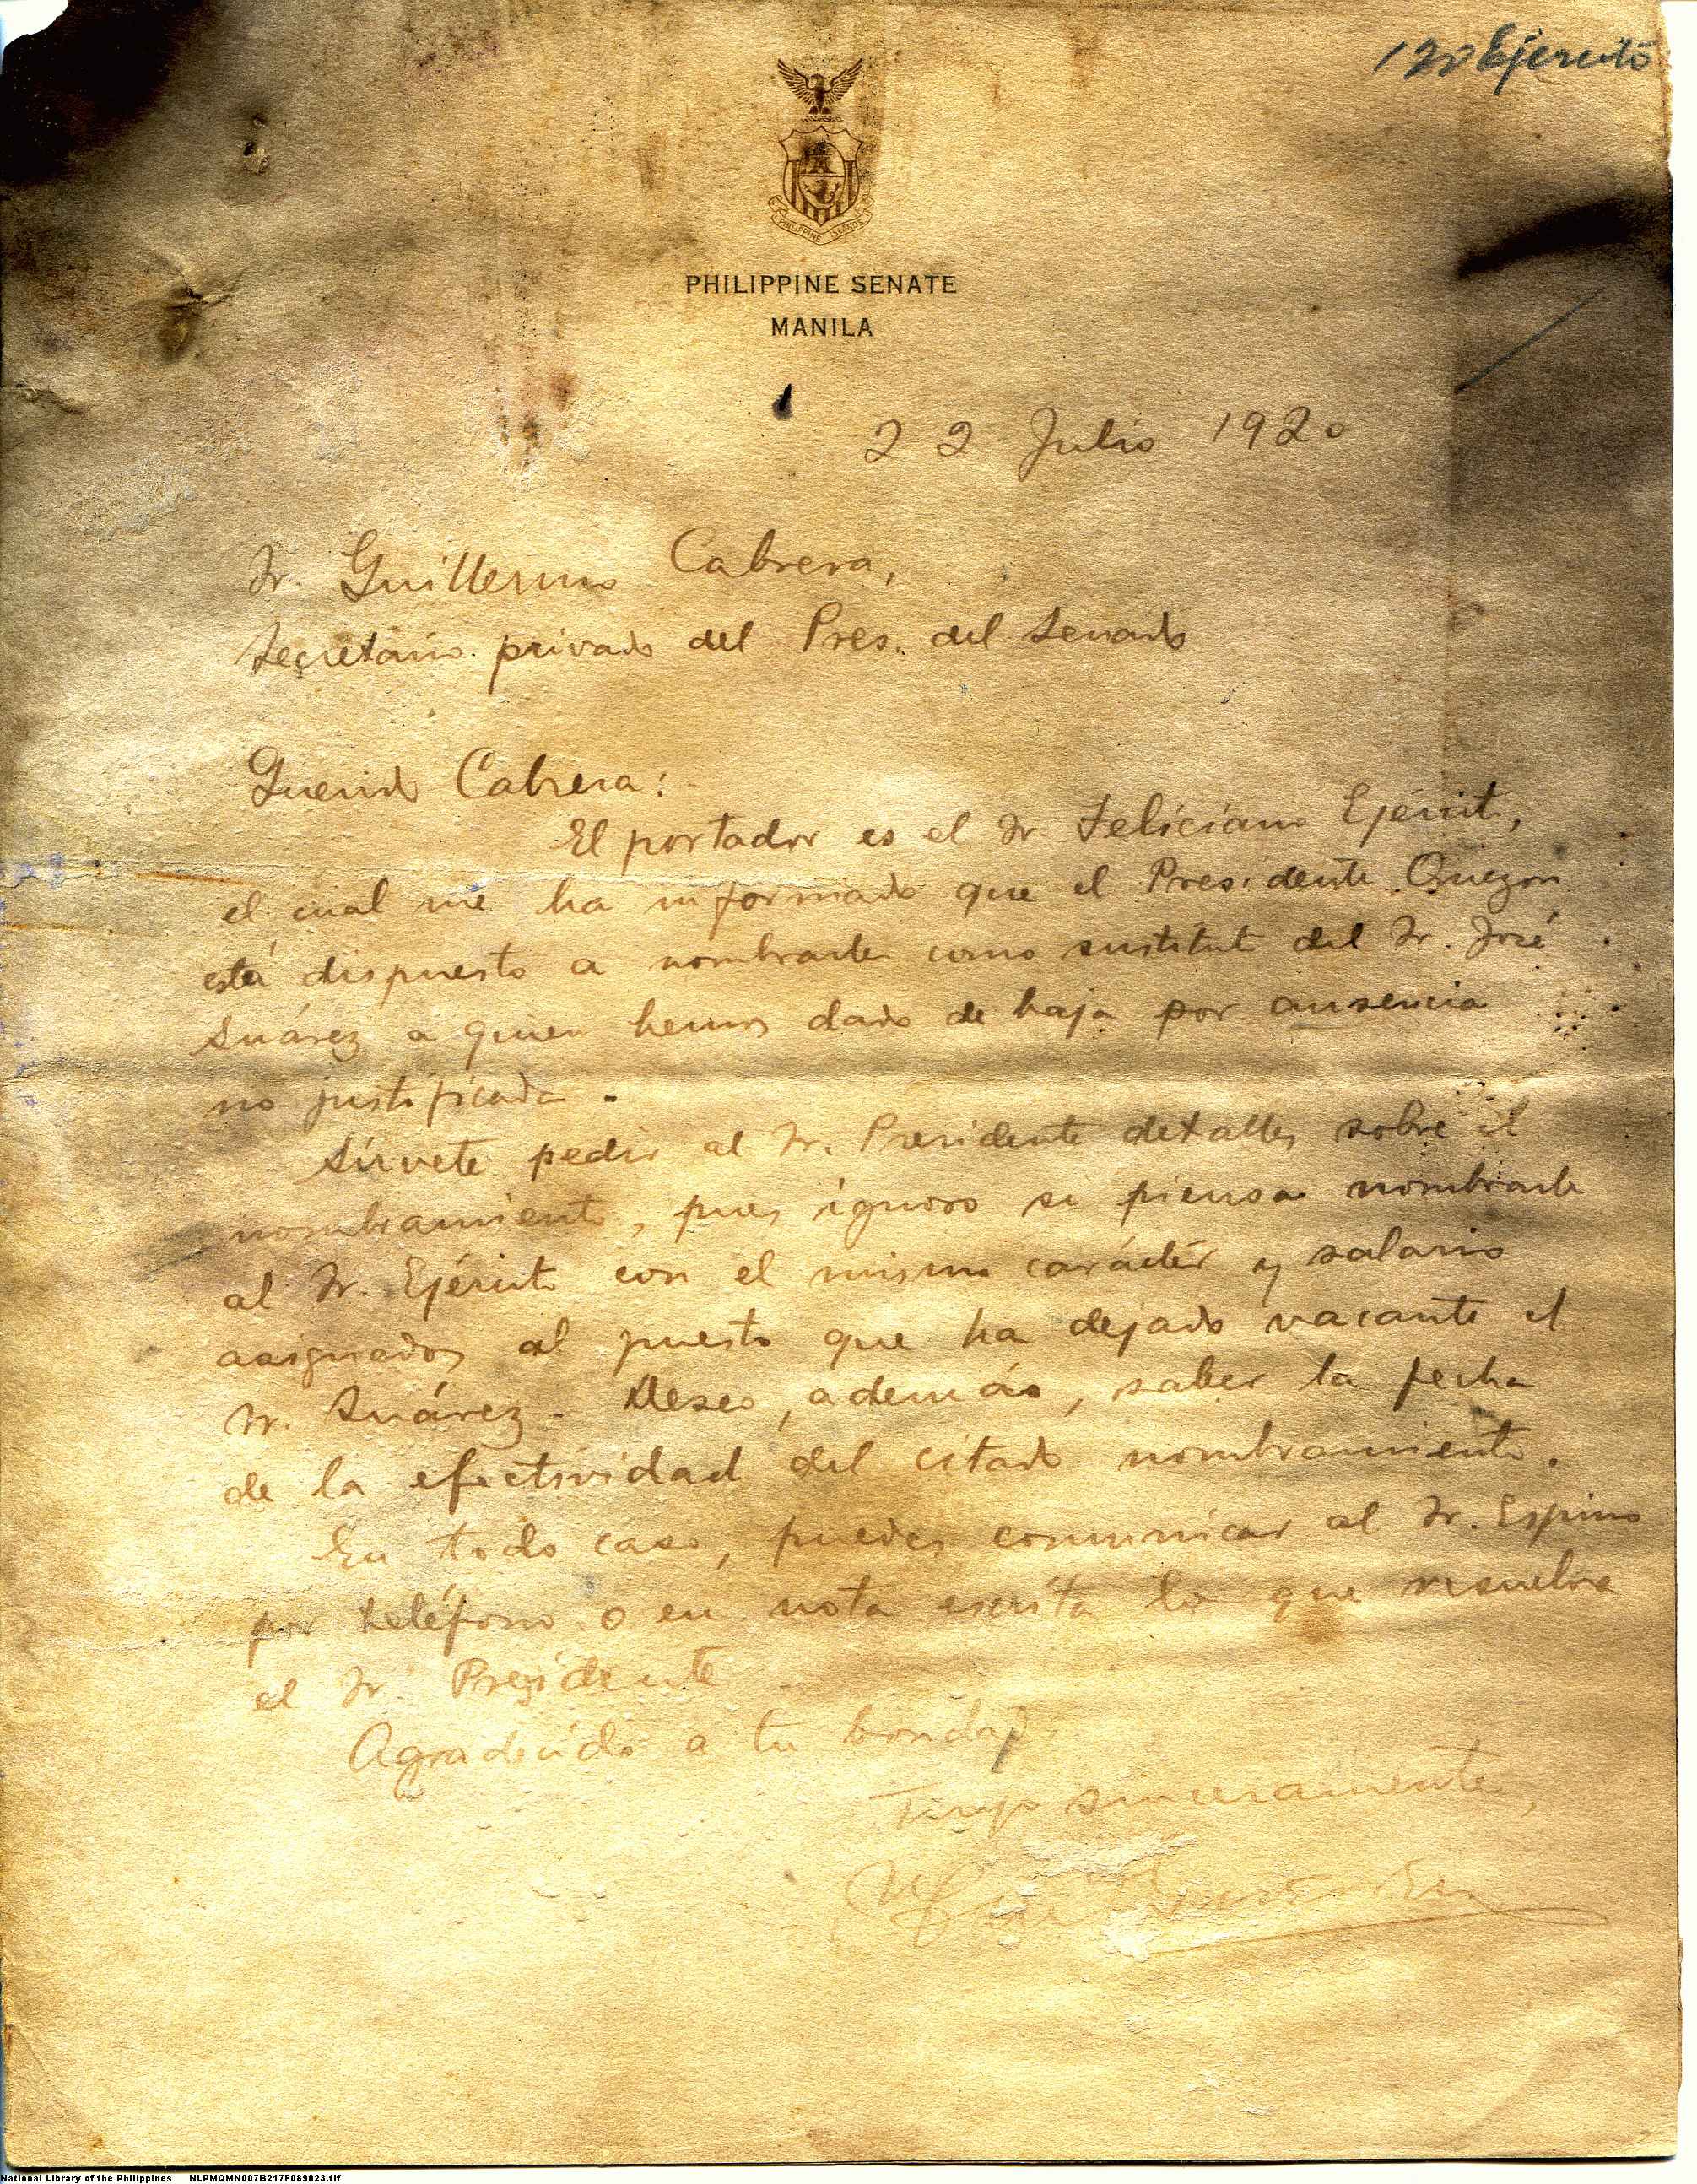 Ejército
PHILIPPINE ISLANDS
PHILIPPINE SENATE
MANILA
22 Julio 1920
Sr. Guillermo Cabrera,
Secretario privado del Pres. del Senado
Querido Cabrera:
El portador es el Sr. Feliciano Ejército,
el cual me ha informado que el Presidente Quezon
está dispuesto a nombrarle como sustituto del Sr. José
Suárez a quien hemos dado de baja por ausencia
no justificada.
Sírvete pedir al Sr. Presidente detalles sobre el
nombramiento, pues ignoro si piensa nombrarle
al Sr. Ejército con el mismo carácter y salario
asignados al puesto que ha dejado vacante el
Sr. Suárez. Deseo, además, saber la fecha
de la efectividad del citado nombramiento.
En todo caso, puedes comunicar al Sr. Espino
por teléfono o en nota escrita lo que resuelva
el Sr. Presidente
Agradecido a tu bondad,
Tuyo sinceramente,
National Library of the Philippines NLPMQMN007B217F089023.tif